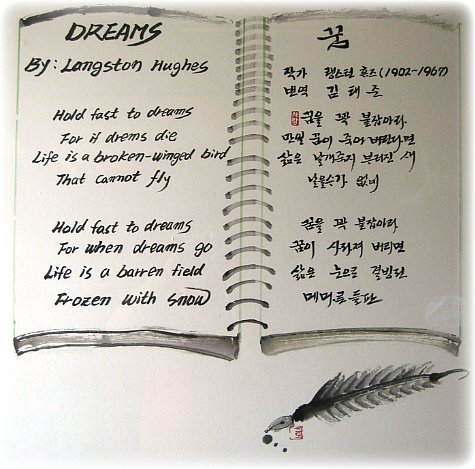 DREAMS
By: Langston Hughes
Hold fast to dreams
For if drems die
Life is a broken-winged bird
That cannot fly
Hold fast to dreams
For when dreams go
Life is a barren field
Frozen with snow
꿈
작가 랭스턴 휴즈(1902-1967)
번역 김태준
꿈을 꽉 붙잡아라
만일 꿈이 죽어 버린다면
삶은 날개죽지 부러진 새
날을수가 없네
꿈을 꽉 붙잡아라
꿈이 사라져 버리면
삶은 눈으로 결빙된
메마른 들판